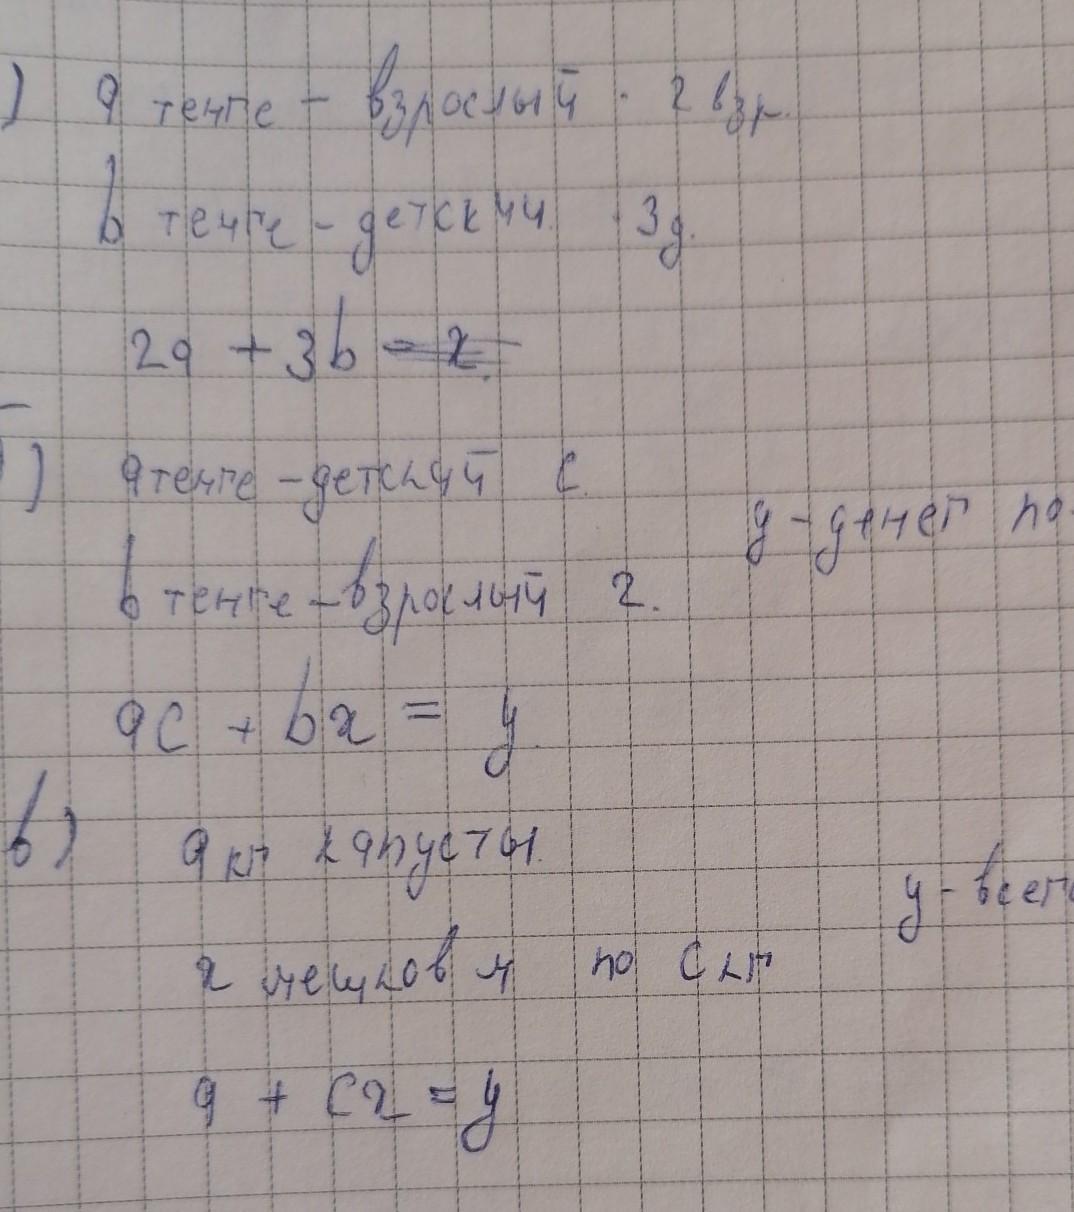 ) a тенге - взрослый · 2 взр.
b тенге - детский · 3д.
2a + 3b = x.
) a тенге - детский c
y - денег по
b тенге - взрослый x.
ac + bx = y
в) a кг капусты
y - всего
x мешков м по c кг
a + cx = y